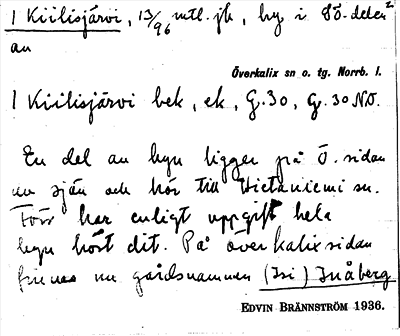 1 Kiilisjärvi, 13/96 mtl. jb, by i SÖ-delen
av
Överkalix sn o. tg. Norrb. l.
1 Kiilisjärvi bek, ek, G.30, G.30 NO.
En del av byn ligger på Ö.sidan
av sjön och hör till Hietaniemi sn.
Förr har enligt uppgift hela
byn hört dit. På överkalixsidan
finnes nu gårdsnamnen (Isi) Inåberg
EDVIN BRÄNNSTRÖM 1936.